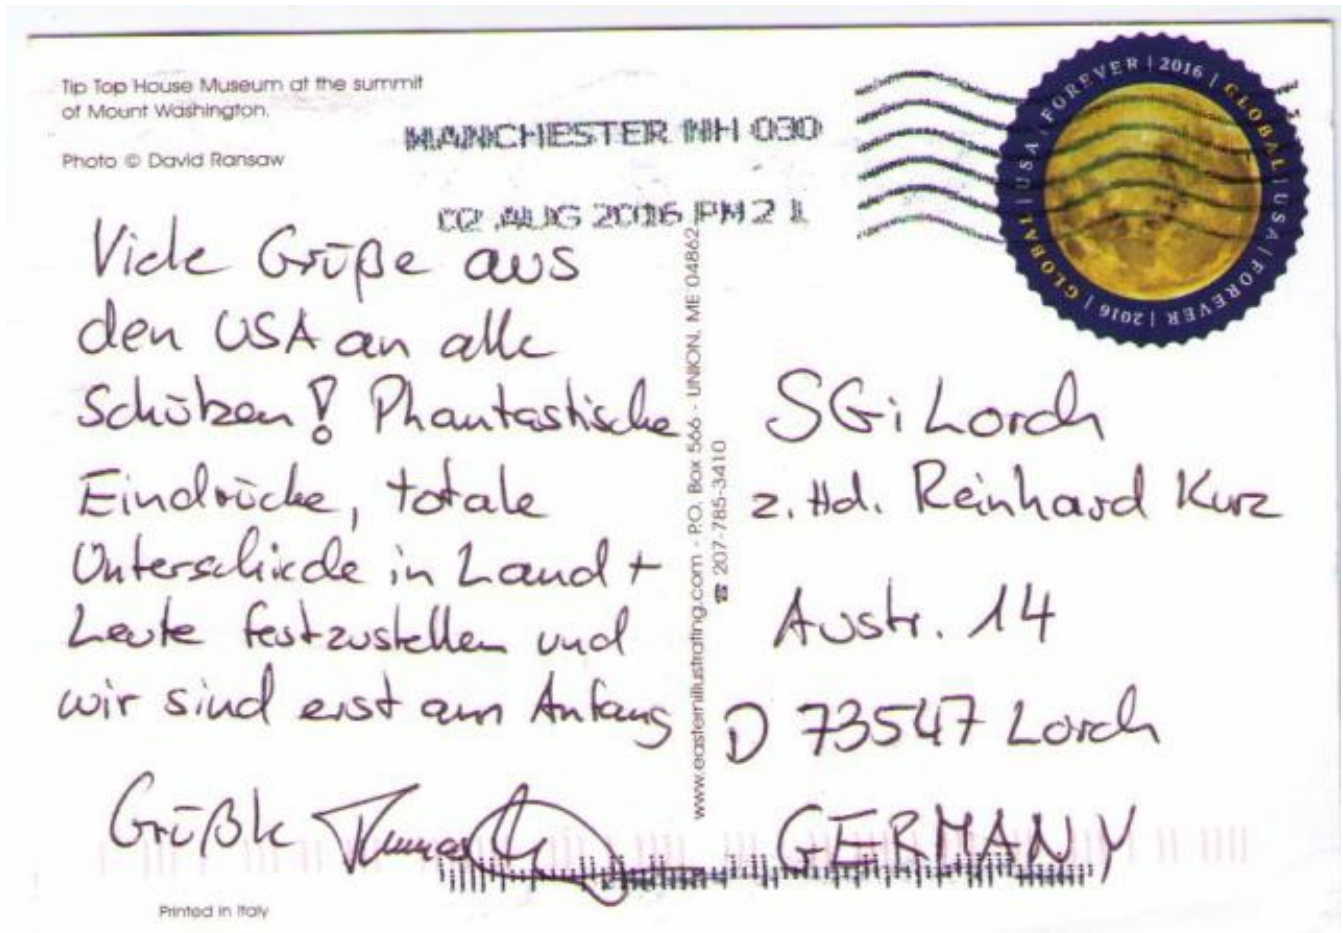 Tip Top House Museum at the summit
of Mount Washington.
Photo © David Ransaw
MANCHESTER NH 030
02 AUG 2016 PM 2 L
GLOBAL | USA | FOREVER | 2016 | GLOBAL | USA | FOREVER | 2016 |
Viele Grüße aus
den USA an alle
Schützen! Phantastische
Eindrücke, totale
Unterschiede in Land +
Leute festzustellen und
wir sind erst am Anfang
Grüßle Thomas
Printed in Italy
www.easternillustrating.com - P.O. Box 566 - UNION, ME 04862
☎ 207-785-3410
SGi Lorch
z. Hd. Reinhard Kurz
Austr. 14
D 73547 Lorch
GERMANY